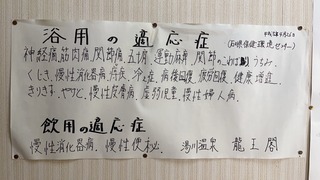 浴用の適応症
平成5年4月26日
(石川県保健環境センター)
神経痛、筋肉痛、関節痛、五十肩、運動麻痺、関節のこわばり、うちみ、
くじき、慢性消化器病、痔疾、冷え症、病後回復、疲労回復、健康増進、
きりきず、やけど、慢性皮膚病、虚弱児童、慢性婦人病、
飲用の適応症
慢性消化器病、慢性便秘、 湯川温泉 龍王閣